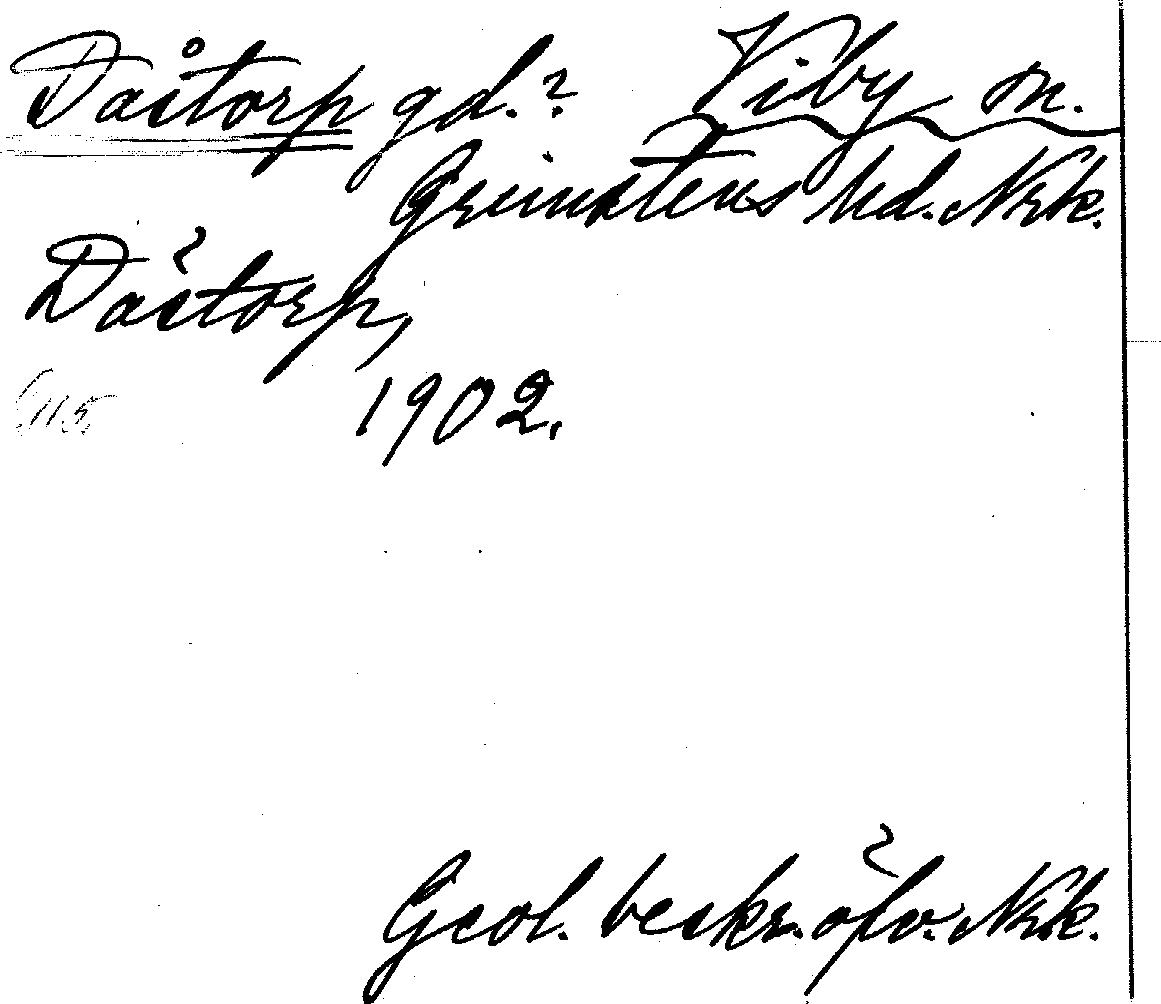 Dåstorp gd.? Viby sn.
Grimstens hd. Nrk.
Dåstorp,
1902.
Geol. beskr. öfv. Nrk.